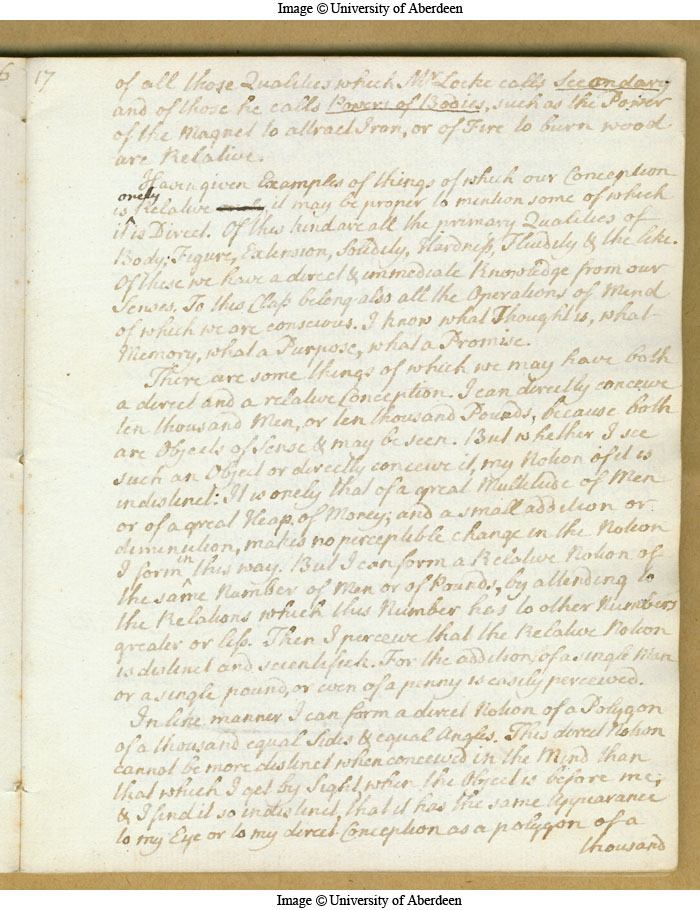 Image © University of Aberdeen
6
17
of all those Qualities which Mr Locke calls Secondary
and of those he calls Powers of Bodies, such as the Power
of the Magnet to attract Iron, or of Fire to burn wood
are Relative.
Having given Examples of things of which our Conception
onely
is Relative it may be proper to mention some of which
it is Direct. Of this kind are all the primary Qualities of
Body; Figure, Extension, Solidity, Hardness, Fluidity & the like.
Of these we have a direct & immediate Knowledge from our
Senses. To this Class belong also all the Operations of Mind
of which we are conscious. I know what Thought is, what
Memory, what a Purpose, what a Promise.
There are some things of which we may have both
a direct and a relative Conception. I can directly conceive
ten thousand Men, or ten thousand Pounds, because both
are Objects of Sense & may be seen. But whether I see
such an Object or directly conceive it, my Notion of it is
indistinct: It is onely that of a great Multitude of Men
or of a great Heap of Money; and a small addition or
diminution, makes no perceptible change in the Notion
I form in this way. But I can form a Relative Notion of
the same Number of Men or of Pounds, by attending to
the Relations which this Number has to other Numbers
greater or less. Then I perceive that the Relative Notion
is distinct and scientifick. For the addition of a single Man
or a single pound, or even of a penny is easily perceived.
In like manner I can form a direct Notion of a Polygon
of a thousand equal Sides & equal Angles. This direct Notion
cannot be more distinct when conceived in the Mind than
that which I get by Sight, when the Object is before me;
& I find it so indistinct, that it has the same Appearance
to my Eye or to my direct Conception as a polygon of a
thousand
Image © University of Aberdeen